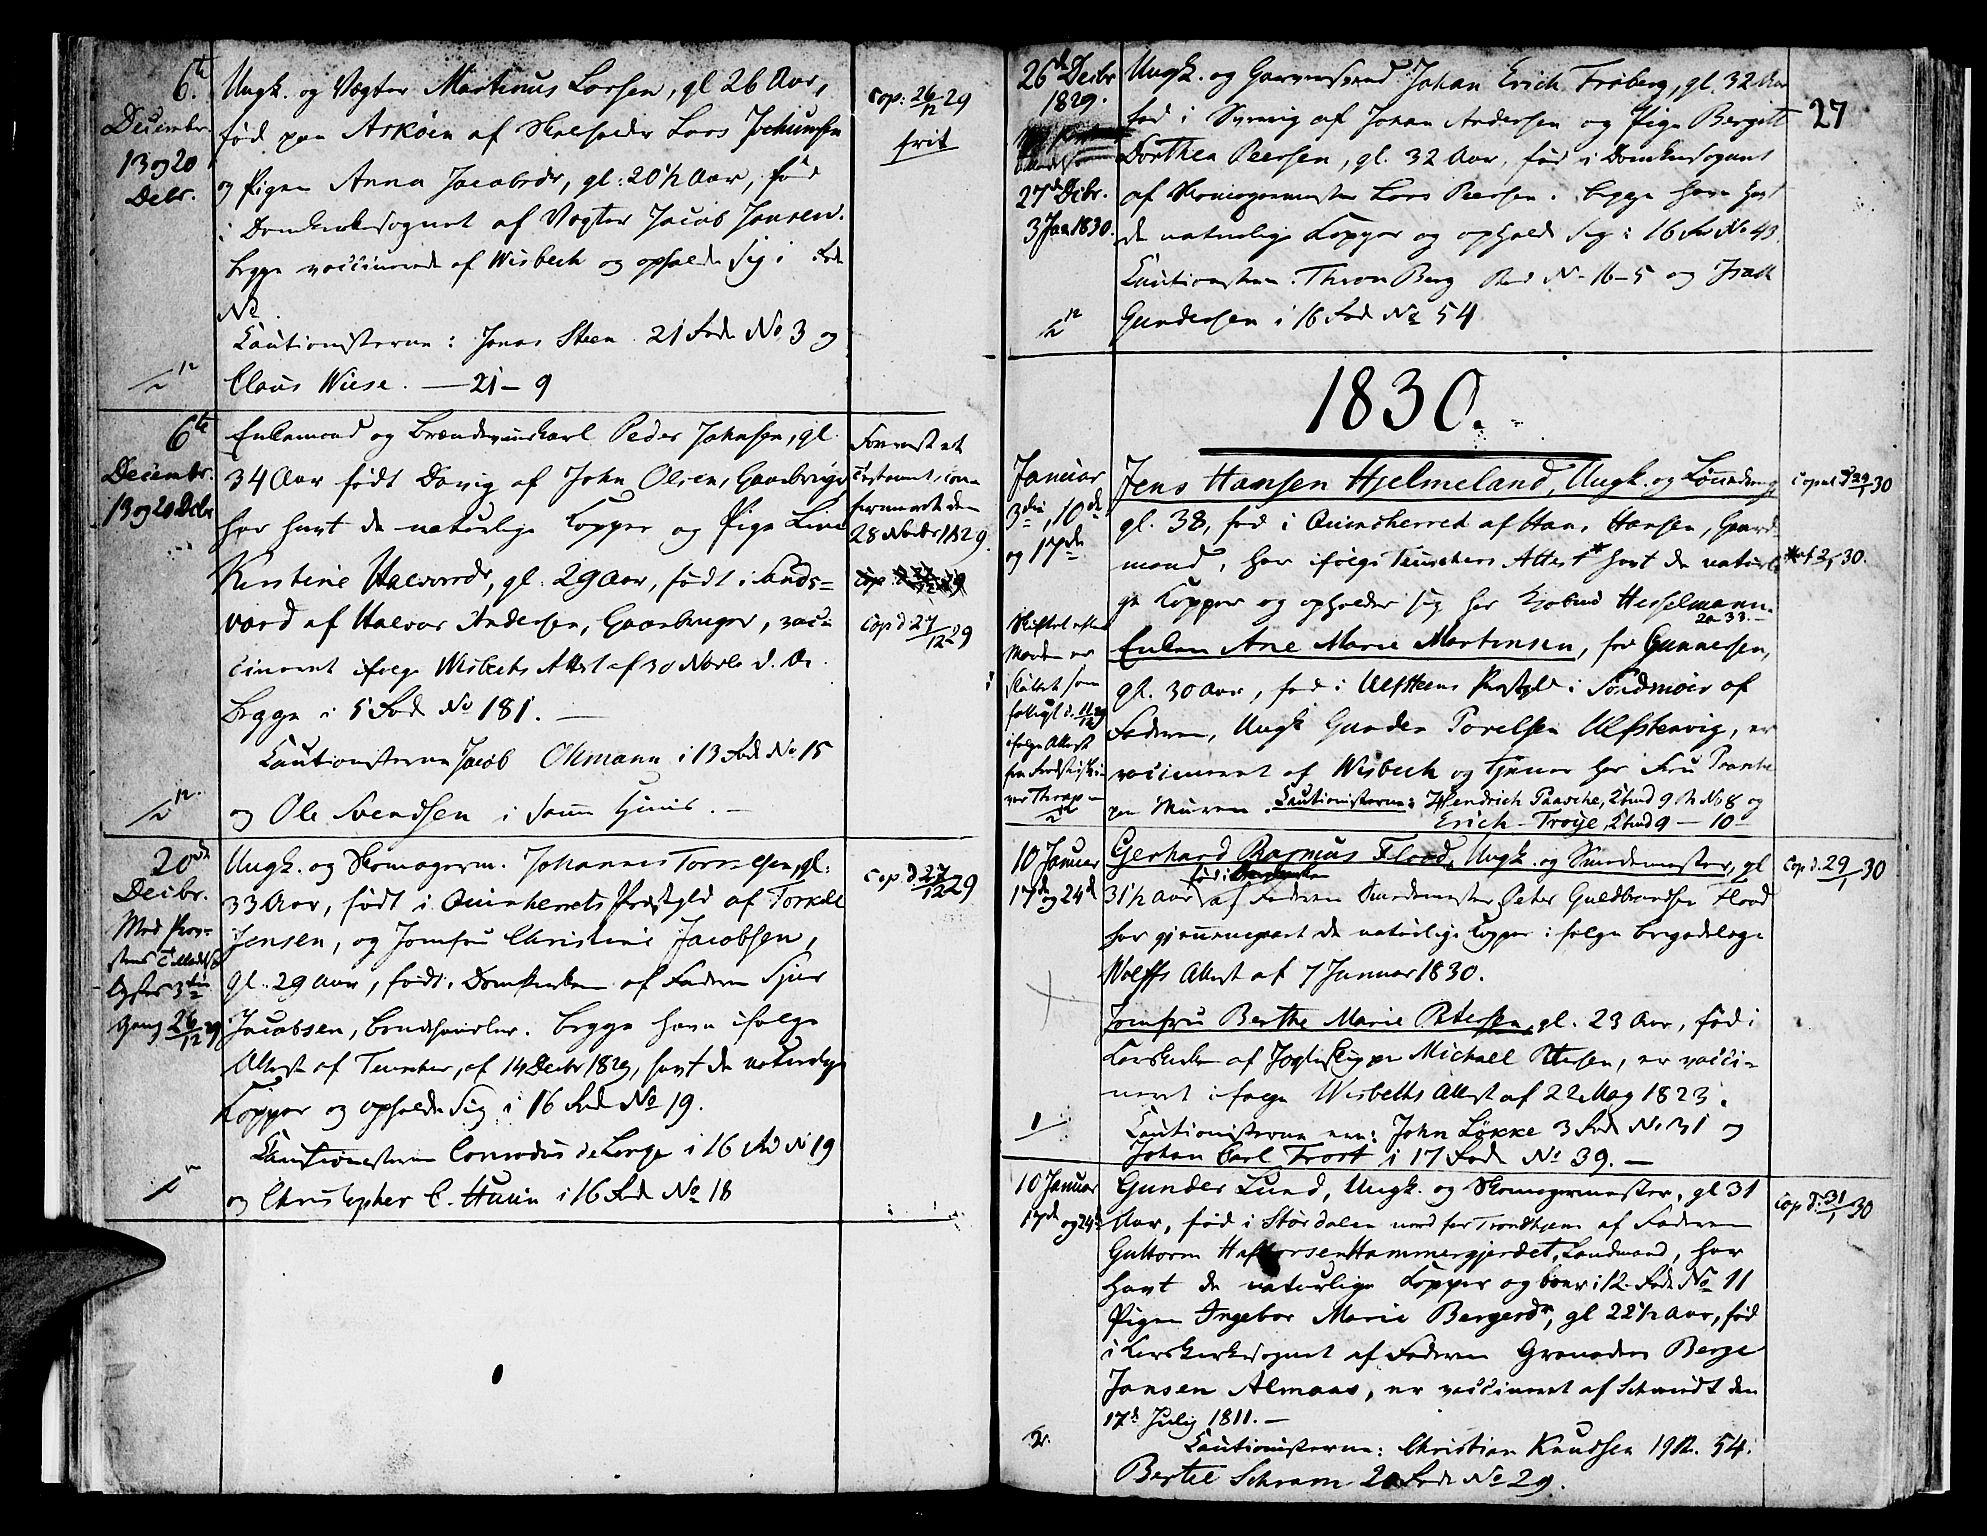 6te
Decembr.
13 og 20
Debr.
Ungk. og Vægter Martinus Larsen, gl 26 Aar,
fød paa Askøen af Lars Jochumsen
og Pigen Anna Jacobsdr, gl: 20½ Aar, fød
i Domkirkesognet af Vægter Jacob Jansen.
begge vaccinerede af Wisbech og opholde sig i Rode
No
Cautionisterne: Jonas Steen 21 Rode No 3 og
Claus Wiese. — 21 — 9
cop: 26/12 29
frit
6te
Decembr.
13 og 20 Debr
Enkemand og Brændeviinskarl Peder Johnsen, gl.
34 Aar født Davig af John Olsen, Gaardbruger
har havt de naturlige Kopper og Pige Line
Kirstine Halvorsdr, gl. 29 Aar, født i Sands-
værd af Halvor Andersen, Gaardbruger, vacci-
cineret ifølge Wisbechs Attest af 30 Novbr d. A.
begge i 5 Rode No 181. —
Cautionisterne Jacob Oltmann i 13 Rode No 15
og Ole Svendsen i samme Huus. —
28 Novbr 1829.
cop d 27/12 29
20de
Decbr.
Med Prov-
stens Tilladelse
lyst 3die
Gang 26/12 29
Ungk. og Skomagerm. Johannes Torkelsen, gl:
33 Aar, født i Quinherrets Præstgld af Torkell
Jensen, og Jomfru Christine Jacobsen,
gl. 29 Aar, født i Domkirken af Faderen Sjur
Jacobsen, Brændehandler. begge have ifølge
Attest af Teuscher, af 14 Decbr 1829, havt de naturlige
Kopper og opholde sig i 16 Rode No 19.
Cautionisterne Conradus de Lange i 16 Rd No 19
og Christopher C. i 16 Rode No 18
cop. d 27/12 29
26de Decbr
1829.
27de Decbr.
3 Jan 1830.
Ungk. og Garversvend Johan Erich Froberg, gl. 32 Aar
fød i Sverrig af Johan Andersen og Pige Bergitte
Dorthea Peersen, gl. 32 Aar, fød i Domkirkesognet
af Skomagermester Lars Peersen. begge have havt
de naturlige Kopper og opholde sig i 16 Rd No 43.
Cautionisterne: Thron Berg Rod No 16-5 og Isak
Gundersen i 16 Rod No 54
27
1830.
Januar
3die, 10de
og 17de
Jens Hansen Hjelmeland, Ungk. og
gl. 38, fød i Quinsherred af Hans Hansen, Gaard-
mand, har ifølge Teuschers Attest * havt de naturli-
ge Kopper og opholder sig hos Kjøbmd Hesselmann.
20-33.—
Enken Ane Marie Mortensen, fød Gunnersen,
gl. 30 Aar, fød i Ulfsteens Præstgld i Søndmøer af
Faderen, Ungk Gunder Torelsen Ulfstenvig, er
vaccineret af Wisbech og tjener hos Fru
paa Muren. Cautionisterne: Hendrich Paasche, 9 R No 8 og
Erich Troye, 9 — 10 —
Skiftet efter
Manden er
sluttet som
følge d. 11/12 29
ifølge Attest
Thrap
copul. d 24/1 30
10 Januar
17de og 24de
Gerhard Rasmus Flood, Ungk. og Smedemester, gl
31½ Aar af Faderen Smedemester Peter Guldbrandsen Flood
har gjennemgaaet de naturlige Kopper ifølge Brigadelæge
Wolffs Attest af 7 Januar 1830.
Jomfru Berthe Marie Petersen, gl. 23 Aar, fød i
Korskirken af Michael Petersen, er vacci-
neret ifølge Wisbechs Attest af 22 May 1823.
Cautionisterne ere: John Løkke 3 Rode No 31 og
Johan Carl Trost i 17 Rode No 39. —
1
cop d. 29/1 30
10 Januar
17de og 24de
Gunder Lund, Ungk. og Skomagermester, gl 31
Aar, fød i Størdalen nord for Trondhjem af Faderen
Guttorm Haftorsen Hammergjerdet, Landmand, har
havt de naturlige Kopper og boer i 12 Rode No 11
Pigen Ingebor Marie Bergesdr, gl 22½ Aar, fød
i Korskirkesognet af Faderen Granadeer Berge
Jansen Almaas, er vaccineret af Schmidt den
17de July 1811. —
Cautionisterne: Christian Knudsen 19 R. 54.
Bertel Schram 20 Rode No 29.
2.
cop d. 31/1 30